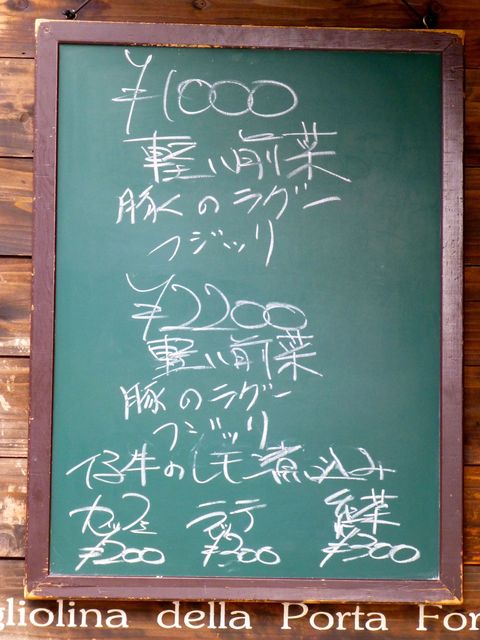 ¥1000
軽い前菜
豚のラグー
フジッリ
¥2200
軽い前菜
豚のラグー
フジッリ
仔牛のレモン煮込み
カッフェ ラッテ 紅茶
¥200 ¥300 ¥300
gliolina della Porta For